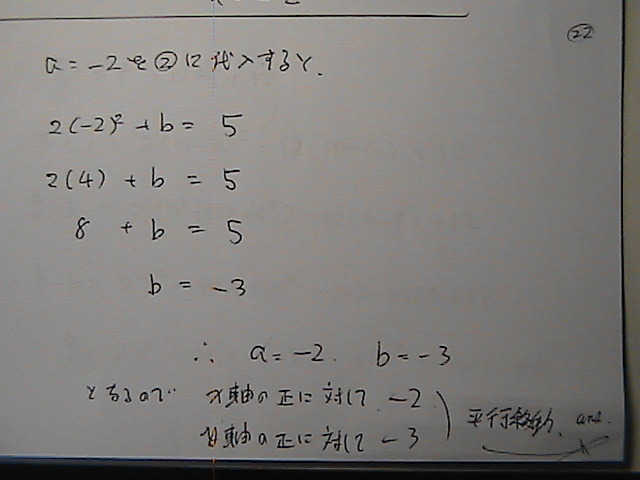 ㉒
a = -2 を ② に 代入すると、
2(-2)² + b = 5
2(4) + b = 5
8 + b = 5
b = -3
∴ a = -2. b = -3
となるので x軸の正に対して -2
y軸の正に対して -3
平行移動、ans.